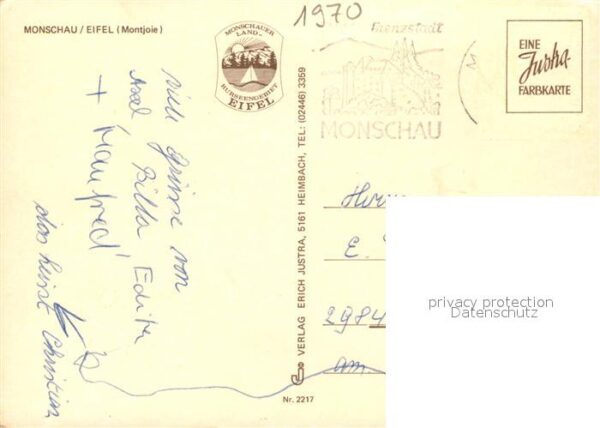 MONSCHAU / EIFEL (Montjoie)
1970
MONSCHAUER
LAND
RURSEENGEBIET
EIFEL
Grenzstadt
MONSCHAU
EINE
Justra
FARBKARTE
Viele Grüsse von
Axel, Billa, Edith
+ Manfred
das heisst Christian
VERLAG ERICH JUSTRA, 5161 HEIMBACH, TEL.: (02446) 3359
Nr. 2217
Herrn
E.
2984
am
privacy protection
Datenschutz